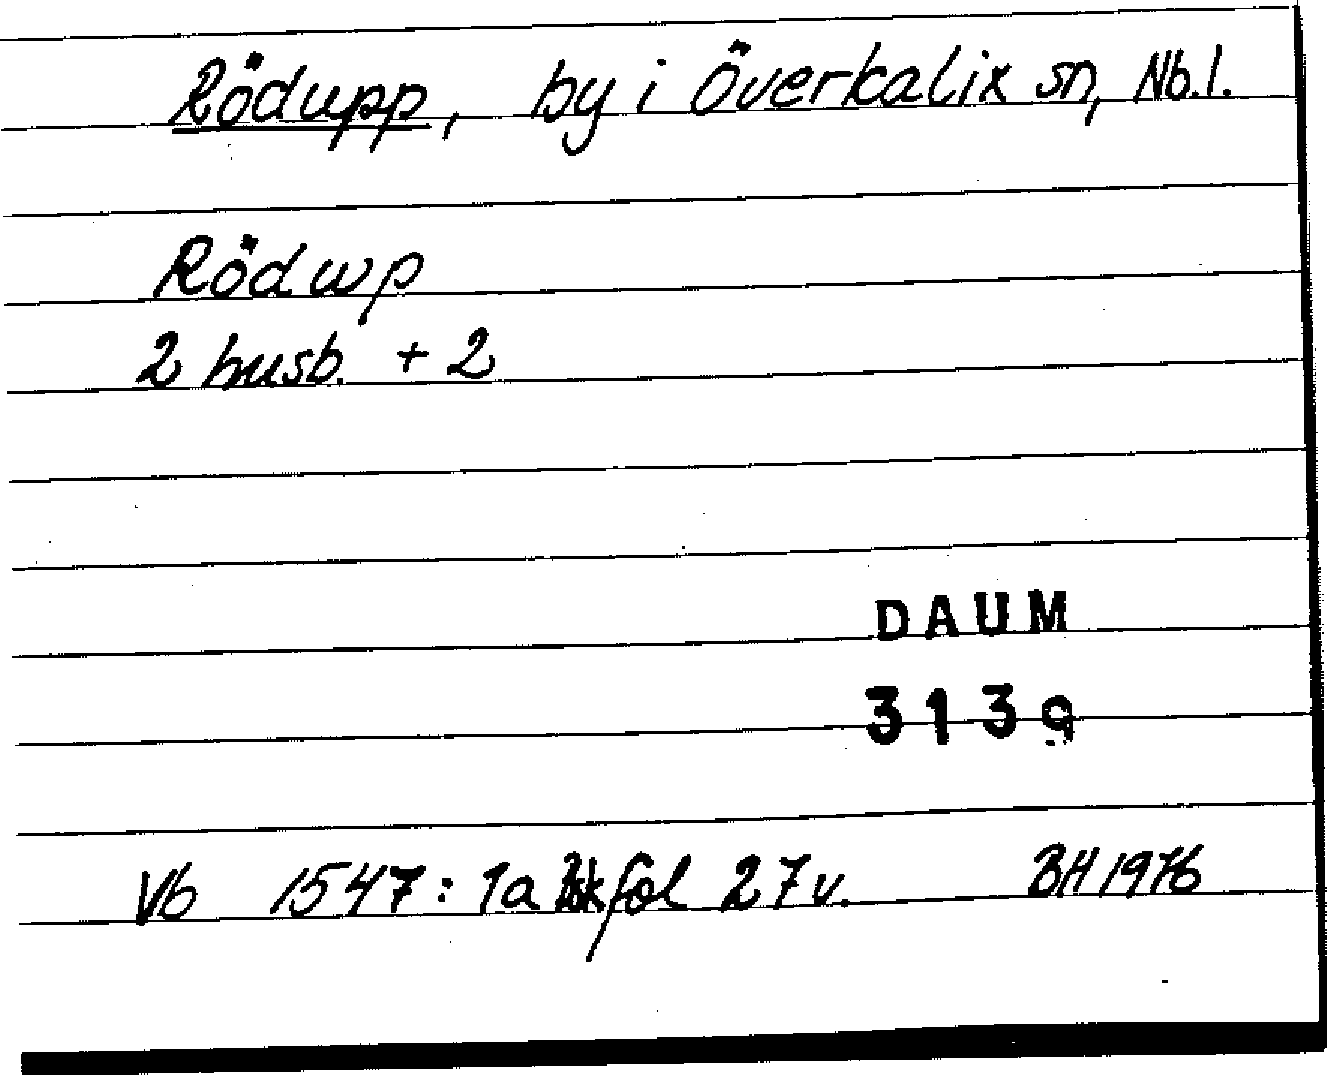 Rödupp, by i Överkalix sn, Nb.l.
Rödwp
2 husb. + 2
DAUM
3139
Vb 1547: 1a fol 27v. BH 1976